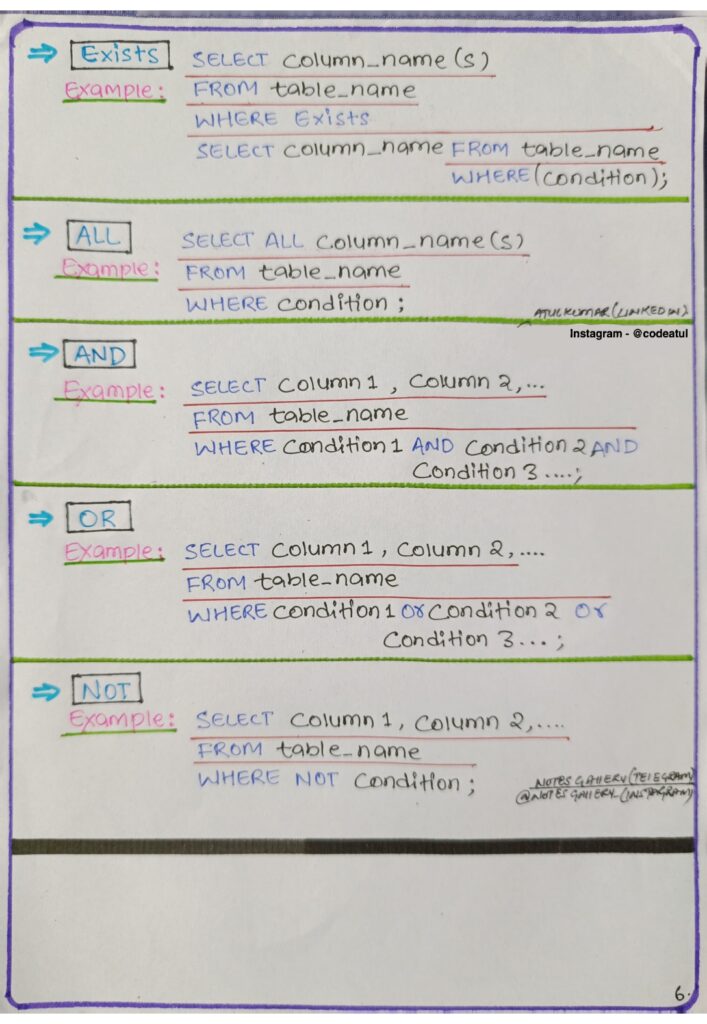 ⇒ Exists SELECT Column_name(s)
Example: FROM table_name
WHERE Exists
SELECT Column_name FROM table_name
WHERE (Condition);
⇒ ALL SELECT ALL Column_name(s)
Example: FROM table_name
WHERE Condition ;
ATULKUMAR (LINKEDIN)
Instagram - @codeatul
⇒ AND
Example: SELECT Column 1 , Column 2,...
FROM table_name
WHERE Condition 1 AND Condition 2 AND
Condition 3 ....;
⇒ OR
Example: SELECT Column 1 , Column 2,....
FROM table_name
WHERE Condition 1 Or Condition 2 Or
Condition 3 ... ;
⇒ NOT
Example: SELECT Column 1 , Column 2,....
FROM table_name
WHERE NOT Condition ;
NOTES GALLERY (TELEGRAM)
@NOTESGALLERY_(INSTAGRAM)
6.